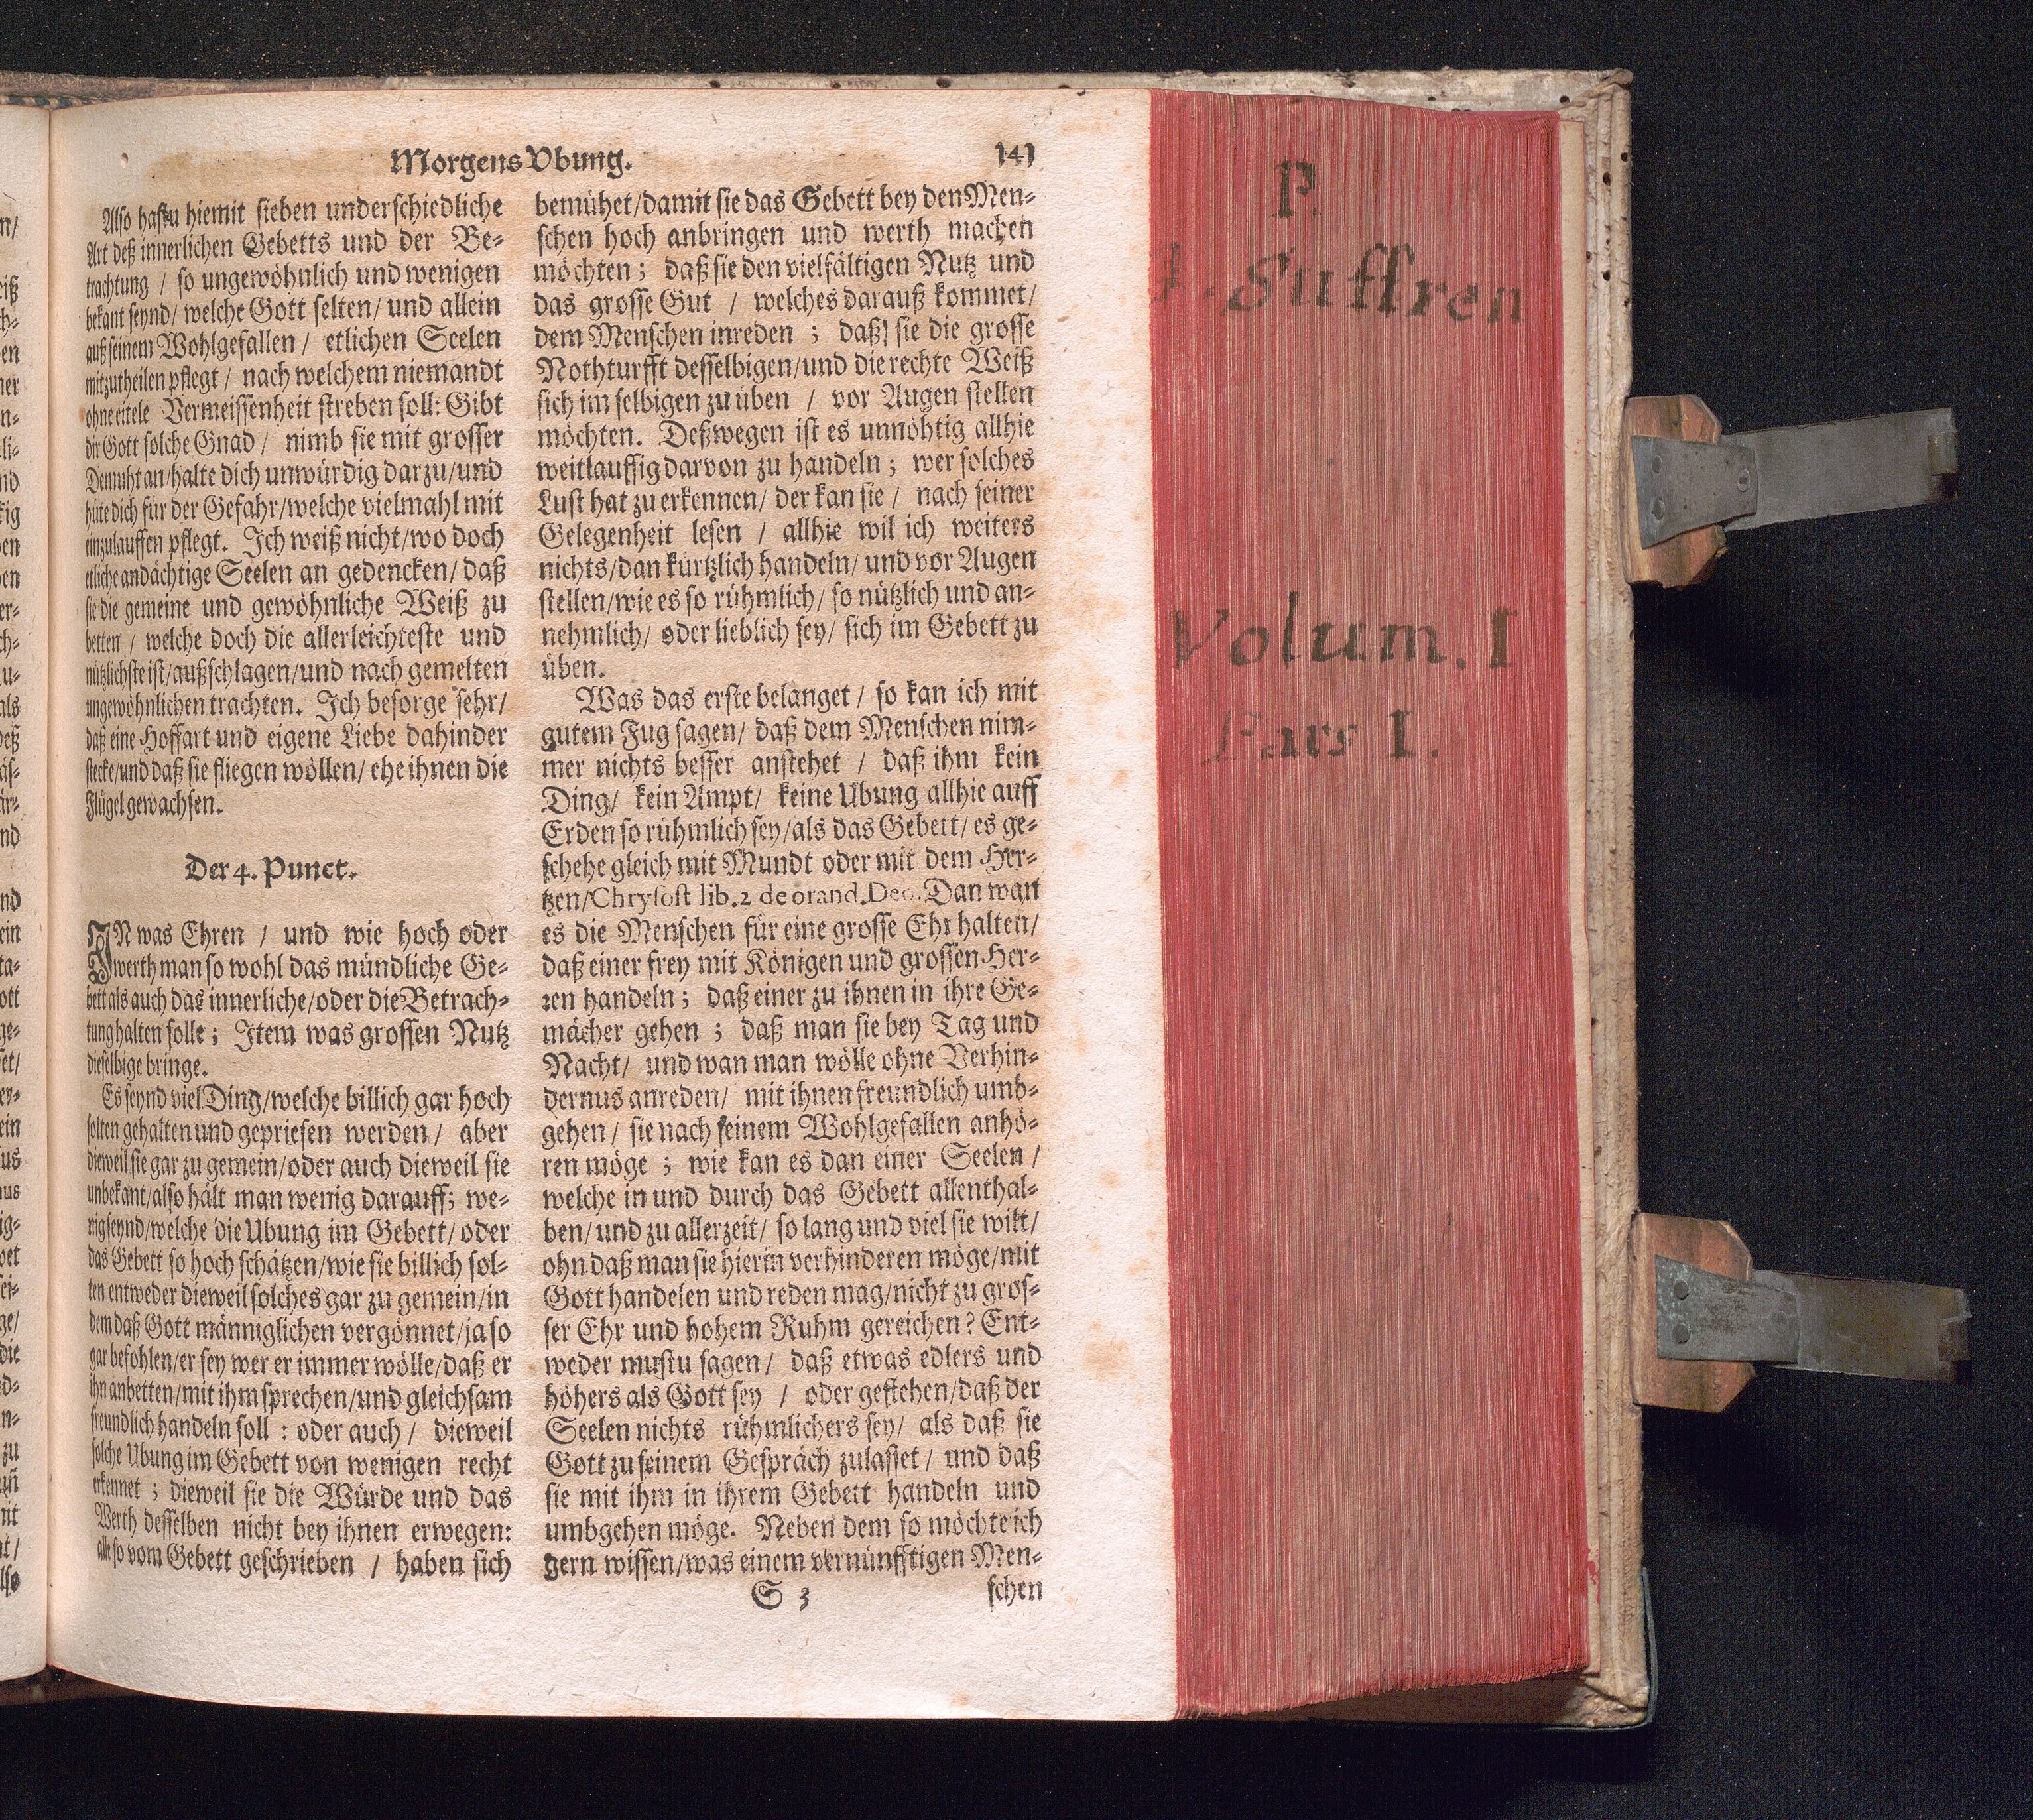 Morgens Vbung. 141
Also hastu hiemit sieben underschiedliche
Art deß innerlichen Gebetts und der Be-
trachtung / so ungewöhnlich und wenigen
bekant seynd / welche Gott selten / und allein
auß seinem Wohlgefallen / etlichen Seelen
mitzutheilen pflegt / nach welchem niemandt
ohne eitele Vermeissenheit streben soll: Gibt
dir Gott solche Gnad / nimb sie mit grosser
Demuht an / halte dich unwürdig darzu / und
hüte dich für der Gefahr / welche vielmahl mit
einzulauffen pflegt. Ich weiß nicht / wo doch
etliche andächtige Seelen an gedencken / daß
sie die gemeine und gewöhnliche Weiß zu
betten / welche doch die allerleichteste und
nützlichste ist / außschlagen / und nach gemelten
ungewöhnlichen trachten. Ich besorge sehr /
daß eine Hoffart und eigene Liebe dahinder
stecke / und daß sie fliegen wöllen / ehe ihnen die
Flügel gewachsen.
Der 4. Punct.
IN was Ehren / und wie hoch oder
werth man so wohl das mündliche Ge-
bett als auch das innerliche / oder die Betrach-
tung halten solle; Item was grossen Nutz
dieselbige bringe.
Es seynd viel Ding / welche billich gar hoch
solten gehalten und gepriesen werden / aber
dieweil sie gar zu gemein / oder auch dieweil sie
unbekant / also hält man wenig darauff; we-
nig seynd / welche die Ubung im Gebett / oder
das Gebett so hoch schätzen / wie sie billich sol-
ten entweder dieweil solches gar zu gemein / in
dem daß Gott männiglichen vergönnet / ja so
gar befohlen / er sey wer er immer wölle / daß er
ihn anbetten / mit ihm sprechen / und gleichsam
freundlich handeln soll : oder auch / dieweil
solche Ubung im Gebett von wenigen recht
erkennet ; dieweil sie die Würde und das
Werth desselben nicht bey ihnen erwegen:
alle so vom Gebett geschrieben / haben sich
bemühet / damit sie das Gebett bey den Men-
schen hoch anbringen und werth machen
möchten ; daß sie den vielfältigen Nutz und
das grosse Gut / welches darauß kommet /
dem Menschen inreden ; daß sie die grosse
Nothturfft desselbigen / und die rechte Weiß
sich im selbigen zu üben / vor Augen stellen
möchten. Deßwegen ist es unnöhtig allhie
weitlauffig darvon zu handeln ; wer solches
Lust hat zu erkennen / der kan sie / nach seiner
Gelegenheit lesen / allhie wil ich weiters
nichts / dan kürtzlich handeln / und vor Augen
stellen / wie es so rühmlich / so nützlich und an-
nehmlich / oder lieblich sey / sich im Gebett zu
üben.
Was das erste belanget / so kan ich mit
gutem Fug sagen / daß dem Menschen nim-
mer nichts besser anstehet / daß ihm kein
Ding / kein Ampt / keine Ubung allhie auff
Erden so rühmlich sey / als das Gebett / es ge-
schehe gleich mit Mundt oder mit dem Her-
tzen / Chrysost lib. 2 de orand. Deo. Dan wan
es die Menschen für eine grosse Ehr halten /
daß einer frey mit Königen und grossen Her-
ren handeln ; daß einer zu ihnen in ihre Ge-
mächer gehen ; daß man sie bey Tag und
Nacht / und wan man wölle ohne Verhin-
dernus anreden / mit ihnen freundlich umb-
gehen / sie nach seinem Wohlgefallen anhö-
ren möge ; wie kan es dan einer Seelen /
welche in und durch das Gebett allenthal-
ben / und zu allerzeit / so lang und viel sie wilt /
ohn daß man sie hierin verhinderen möge / mit
Gott handelen und reden mag / nicht zu gros-
ser Ehr und hohem Ruhm gereichen? Ent-
weder mustu sagen / daß etwas edlers und
höhers als Gott sey / oder gestehen / daß der
Seelen nichts rühmlichers sey / als daß sie
Gott zu seinem Gespräch zulasset / und daß
sie mit ihm in ihrem Gebett handeln und
umbgehen möge. Neben dem so möchte ich
gern wissen / was einem vernünfftigen Men-
S 3 schen
P.
J. Suffren
Volum. I
Pars I.